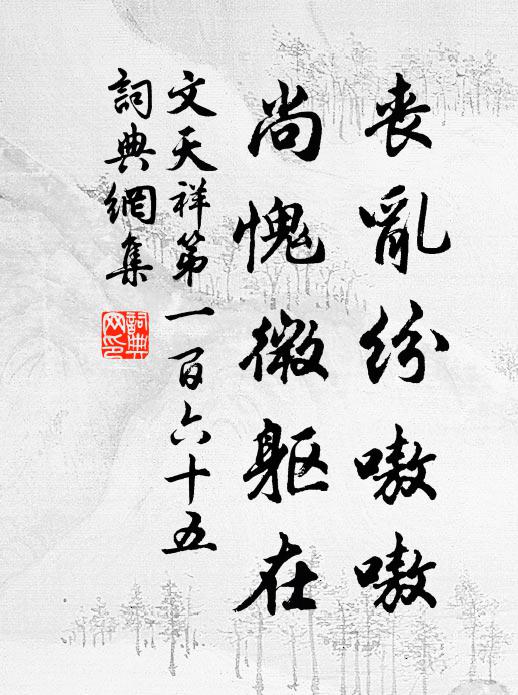 喪亂紛嗷嗷
尚愧微軀在
文天祥第一百六十五
詞典網集
詞典网印